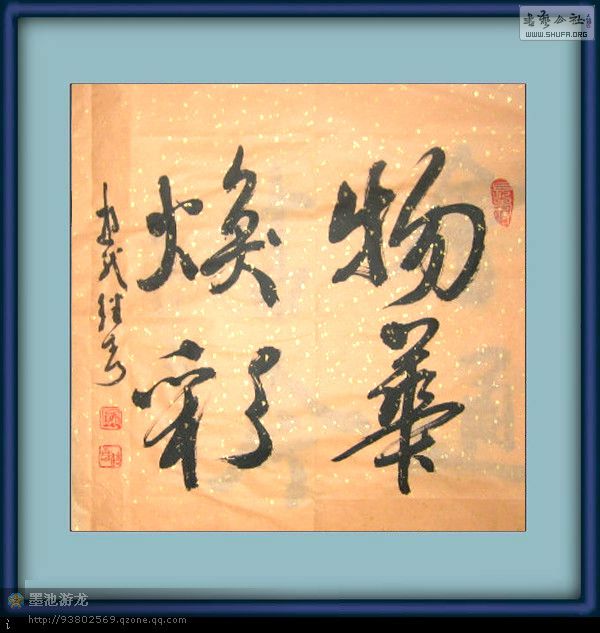 物華
煥彩
書藝公社
WWW.SHUFA.ORG
墨池游龙
http://93802569.qzone.qq.com